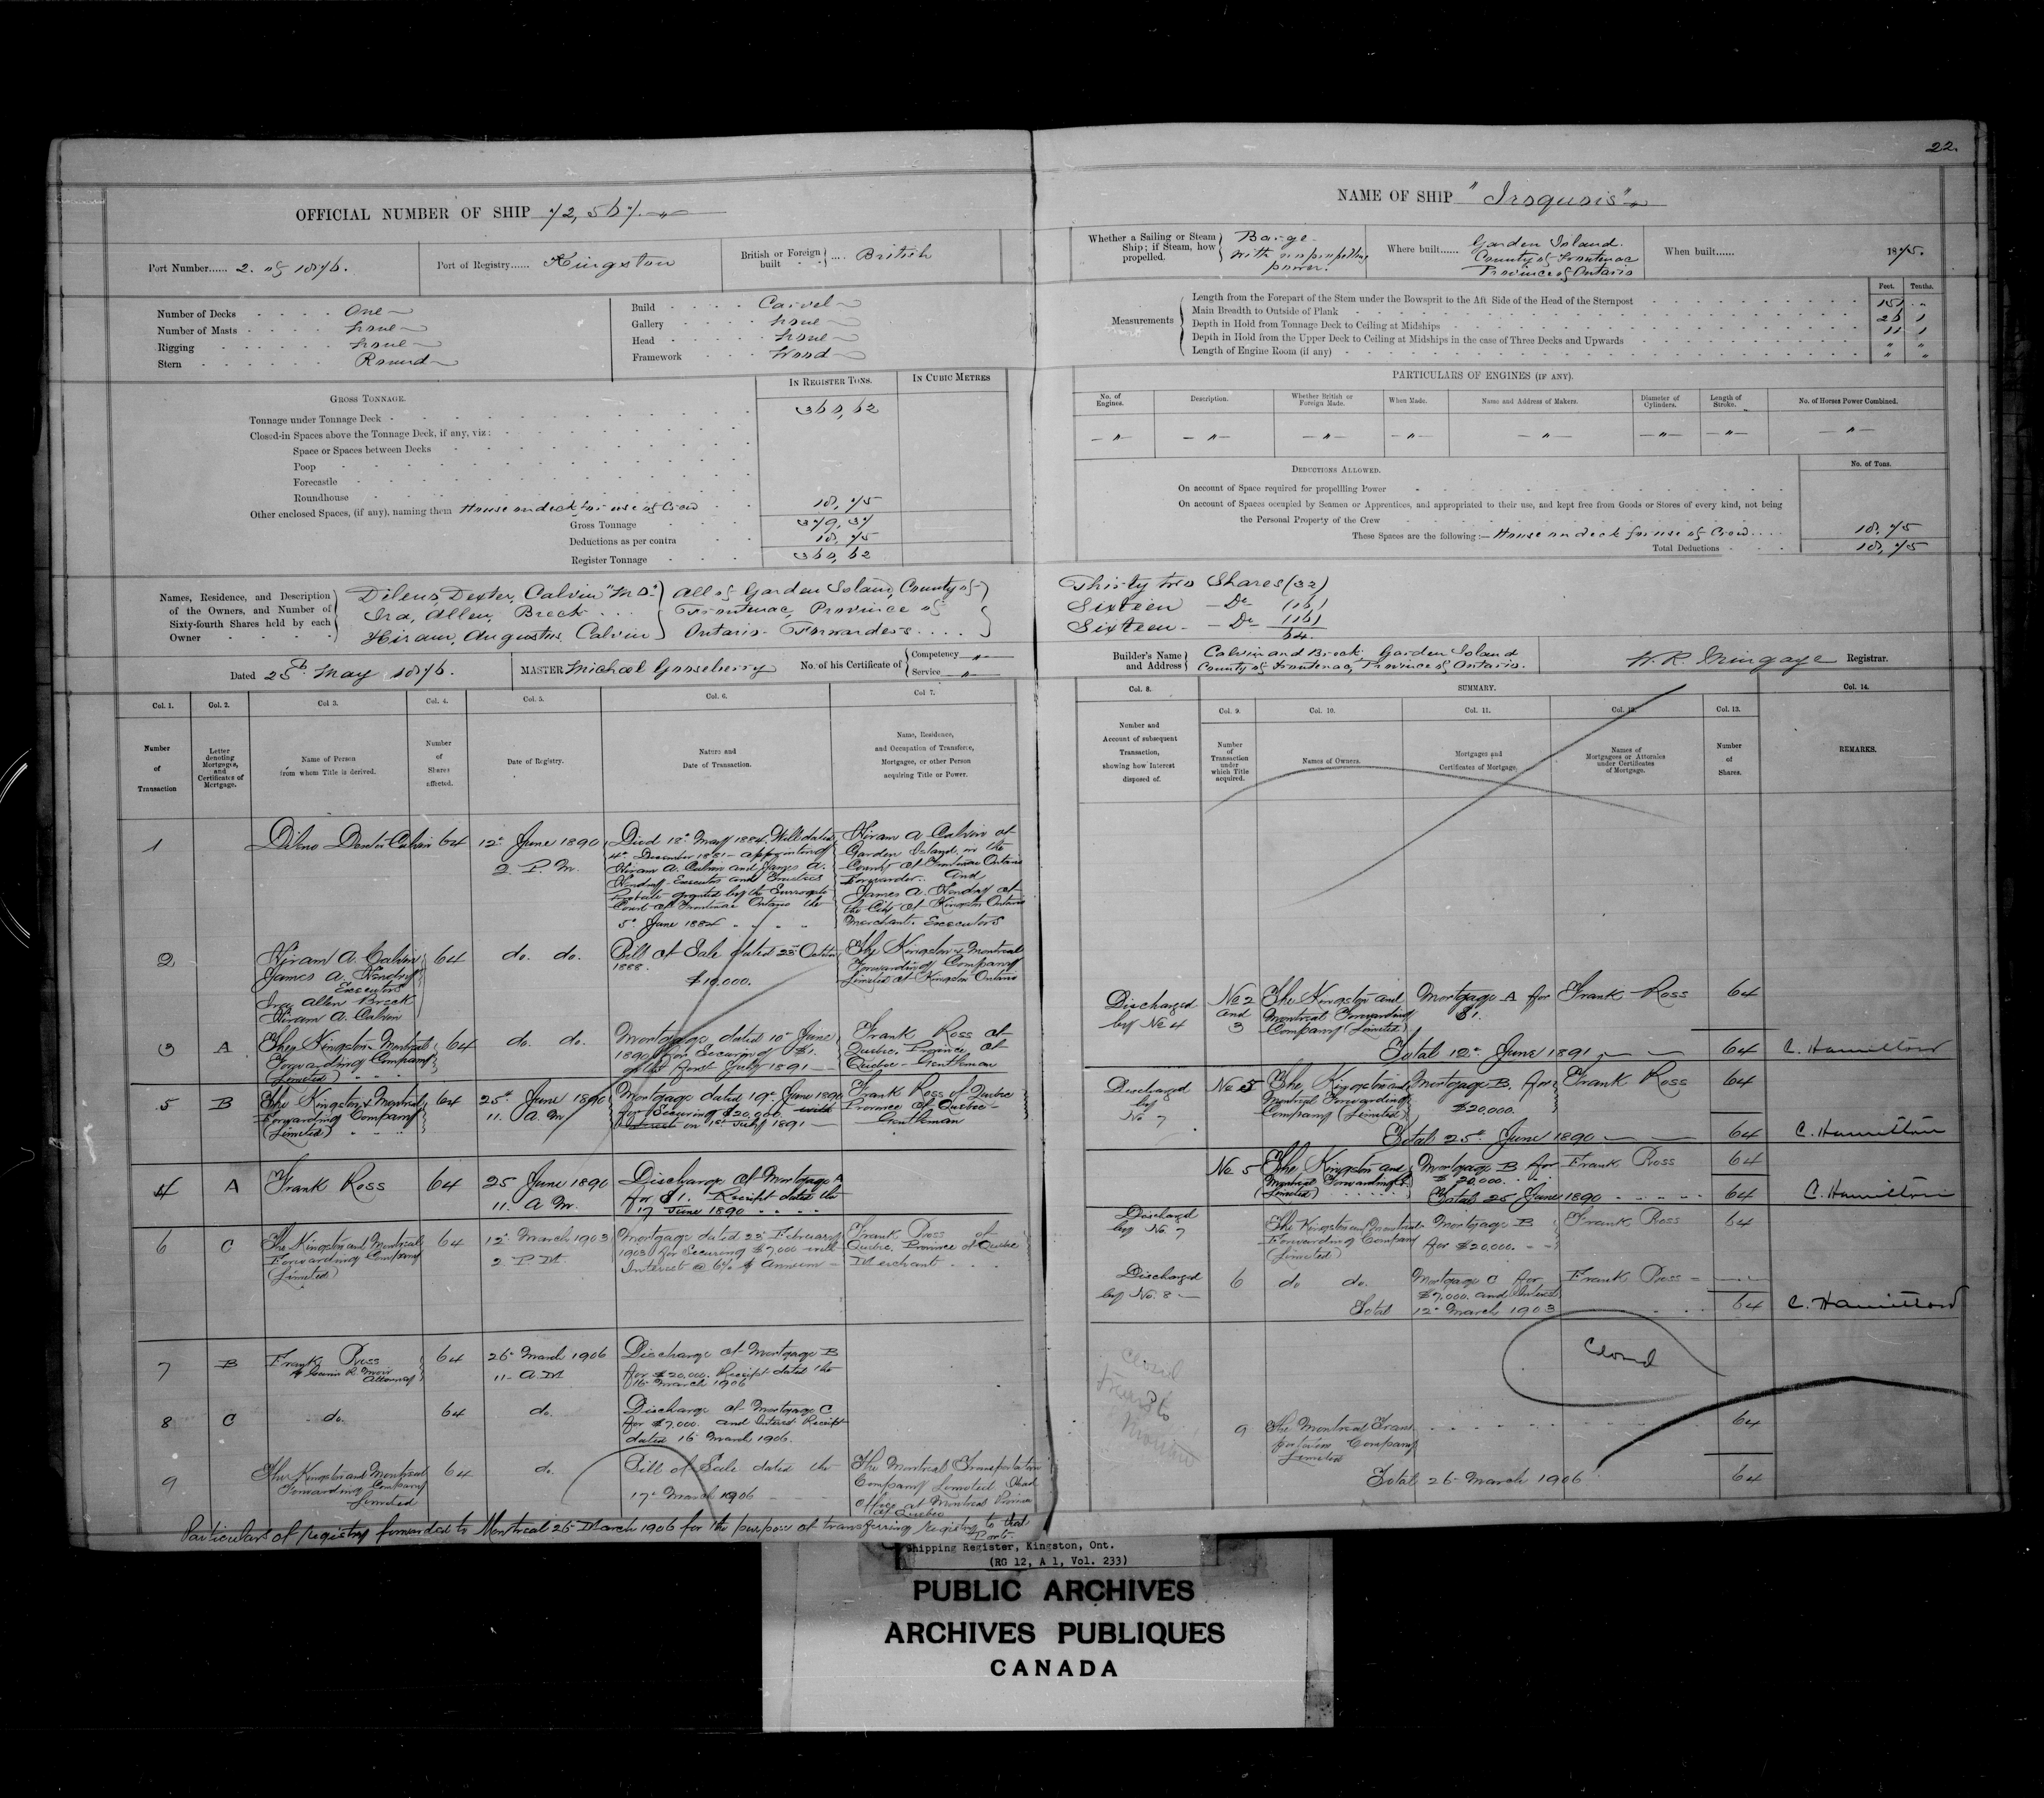 22.
OFFICIAL NUMBER OF SHIP 72,567.
NAME OF SHIP "Iroquois"
Port Number...... 2. of 1876.
Port of Registry...... Kingston
British or Foreign built .... British
Whether a Sailing or Steam Ship; if Steam, how propelled. Barge with no propelling power.
Where built...... Garden Island. County of Frontenac Province of Ontario
When built...... 1875.
Number of Decks One
Number of Masts none
Rigging none
Stern Round
Build Carvel
Gallery none
Head none
Framework Wood
Feet. Tenths.
Measurements
Length from the Forepart of the Stem under the Bowsprit to the Aft Side of the Head of the Sternpost 151 "
Main Breadth to Outside of Plank 26 1
Depth in Hold from Tonnage Deck to Ceiling at Midships 11 1
Depth in Hold from the Upper Deck to Ceiling at Midships in the case of Three Decks and Upwards " "
Length of Engine Room (if any) " "
GROSS TONNAGE.
IN REGISTER TONS.
IN CUBIC METRES
Tonnage under Tonnage Deck 360,62
Closed-in Spaces above the Tonnage Deck, if any, viz:
Space or Spaces between Decks
Poop
Forecastle
Roundhouse
Other enclosed Spaces, (if any), naming them House on deck for use of Crew 18,75
Gross Tonnage 379,37
Deductions as per contra 18,75
Register Tonnage 360,62
PARTICULARS OF ENGINES (IF ANY).
No. of Engines.
Description.
Whether British or Foreign Made.
When Made.
Name and Address of Makers.
Diameter of Cylinders.
Length of Stroke.
No. of Horses Power Combined.
— " — — " — — " — — " — — " — — " — — " — — " —
DEDUCTIONS ALLOWED.
No. of Tons.
On account of Space required for propelling Power
On account of Spaces occupied by Seamen or Apprentices, and appropriated to their use, and kept free from Goods or Stores of every kind, not being
the Personal Property of the Crew
These Spaces are the following:— House on deck for use of Crew.... 18,75
Total Deductions 18,75
Names, Residence, and Description of the Owners, and Number of Sixty-fourth Shares held by each Owner
Dileno, Dexter, Calvin
Ira, Allen, Breck
Hiram, Augustus, Calvin
All of Garden Island, County of
Frontenac, Province of
Ontario - Forwarders....
Thirty two Shares (32)
Sixteen — Do — (16)
Sixteen — Do — (16)
64.
Dated 25th May 1876.
MASTER Michael Gooseberry
No. of his Certificate of Competency — " — Service — " —
Builder's Name and Address Calvin and Breck Garden Island County of Frontenac, Province of Ontario.
W. R. Mingaye Registrar.
Col. 1. Col. 2. Col 3. Col. 4. Col. 5. Col. 6. Col 7.
Col. 8. SUMMARY. Col. 14.
Col. 9. Col. 10. Col. 11. Col. 12. Col. 13.
Number of Transaction
Letter denoting Mortgages, and Certificates of Mortgage.
Name of Person from whom Title is derived.
Number of Shares affected.
Date of Registry.
Nature and Date of Transaction.
Name, Residence, and Occupation of Transferee, Mortgagee, or other Person acquiring Title or Power.
Number and Account of subsequent Transaction, showing how Interest disposed of.
Number of Transaction under which Title acquired.
Names of Owners.
Mortgages and Certificates of Mortgage.
Names of Mortgagees or Attornies under Certificates of Mortgage.
Number of Shares.
REMARKS.
1
Dileno Dexter Calvin 64 12th June 1890 2 P.M.
Died 18th May 1884. Will dated
4th December 1881 - appointing
Hiram A. Calvin and James A.
Hendry - Executors and Trustees
Probate granted by the Surrogate
Court of Frontenac Ontario the
5th June 1884
Hiram A. Calvin of
Garden Island in the
County of Frontenac Ontario
Forwarder. And
James A. Hendry of
the City of Kingston Ontario
Merchant. Executors
2
Hiram A. Calvin
James A. Hendry
Executors
Ira Allen Breck
Hiram A. Calvin
64 do. do.
Bill of Sale dated 23rd October
1888.
$10,000.
The Kingston & Montreal
Forwarding Company
Limited of Kingston Ontario
3 A
The Kingston & Montreal
Forwarding Company
(Limited)
64 do. do.
Mortgage dated 10th June
1890 for Securing $1.
on the first July 1891
Frank Ross of
Quebec, Province of
Quebec - Gentleman
Discharged by No 4
No 2 and 3
The Kingston and
Montreal Forwarding
Company (Limited)
Mortgage A for $1.
Frank Ross 64
Total 12th June 1891 64 C. Hamilton
5 B
The Kingston & Montreal
Forwarding Company
(Limited)
64 25th June 1890 11. A.M
Mortgage dated 19th June 1890
for Securing $20,000. with
Interest on 1st July 1891
Frank Ross of Quebec
Province of Quebec -
Gentleman
Discharged by No. 7
No 5
The Kingston and
Montreal Forwarding
Company (Limited)
Mortgage B. for $20,000.
Frank Ross 64
Total 25th June 1890 64 C. Hamilton
4 A
Frank Ross 64 25 June 1890 11. A M.
Discharge of Mortgage A
for $1. Receipt dated the
17 June 1890
No. 5
The Kingston and
Montreal Forwarding Co.
(Limited)
Mortgage B for $20,000.
Frank Ross 64
Total 25 June 1890 64 C. Hamilton
6 C
The Kingston and Montreal
Forwarding Company
(Limited)
64 12th March 1903 2 P.M.
Mortgage dated 23rd February
1903 for Securing $7,000 with
Interest @ 6% p annum -
Frank Ross of
Quebec, Province of Quebec
Merchant
Discharged by No. 7
The Kingston and Montreal
Forwarding Company
(Limited)
Mortgage B
for $20,000.
Frank Ross 64
Discharged by No. 8
6 do do.
Mortgage C for
$7,000. and Interest
Frank Ross
Total 12th March 1903 64 C. Hamilton
7 B
Frank Ross
Attorney
64 26th March 1906 11 A.M
Discharge of Mortgage B
for $20,000. Receipt dated the
16th March 1906
Closed
8 C
do. 64 do.
Discharge of Mortgage C
for $7,000. and Interest Receipt
dated 16 March 1906.
Closed
Transf to
9
The Kingston and Montreal
Forwarding Company
Limited
64 do.
Bill of Sale dated the
17th March 1906
The Montreal Transportation
Company Limited Head
Office at Montreal Province
of Quebec
9
The Montreal Trans-
portation Company
Limited
64
Total 26 March 1906 64
Particulars of registry forwarded to Montreal 26 March 1906 for the purpose of transferring registry to that
Port.
Shipping Register, Kingston, Ont.
(RG 12, A 1, Vol. 233)
PUBLIC ARCHIVES
ARCHIVES PUBLIQUES
CANADA